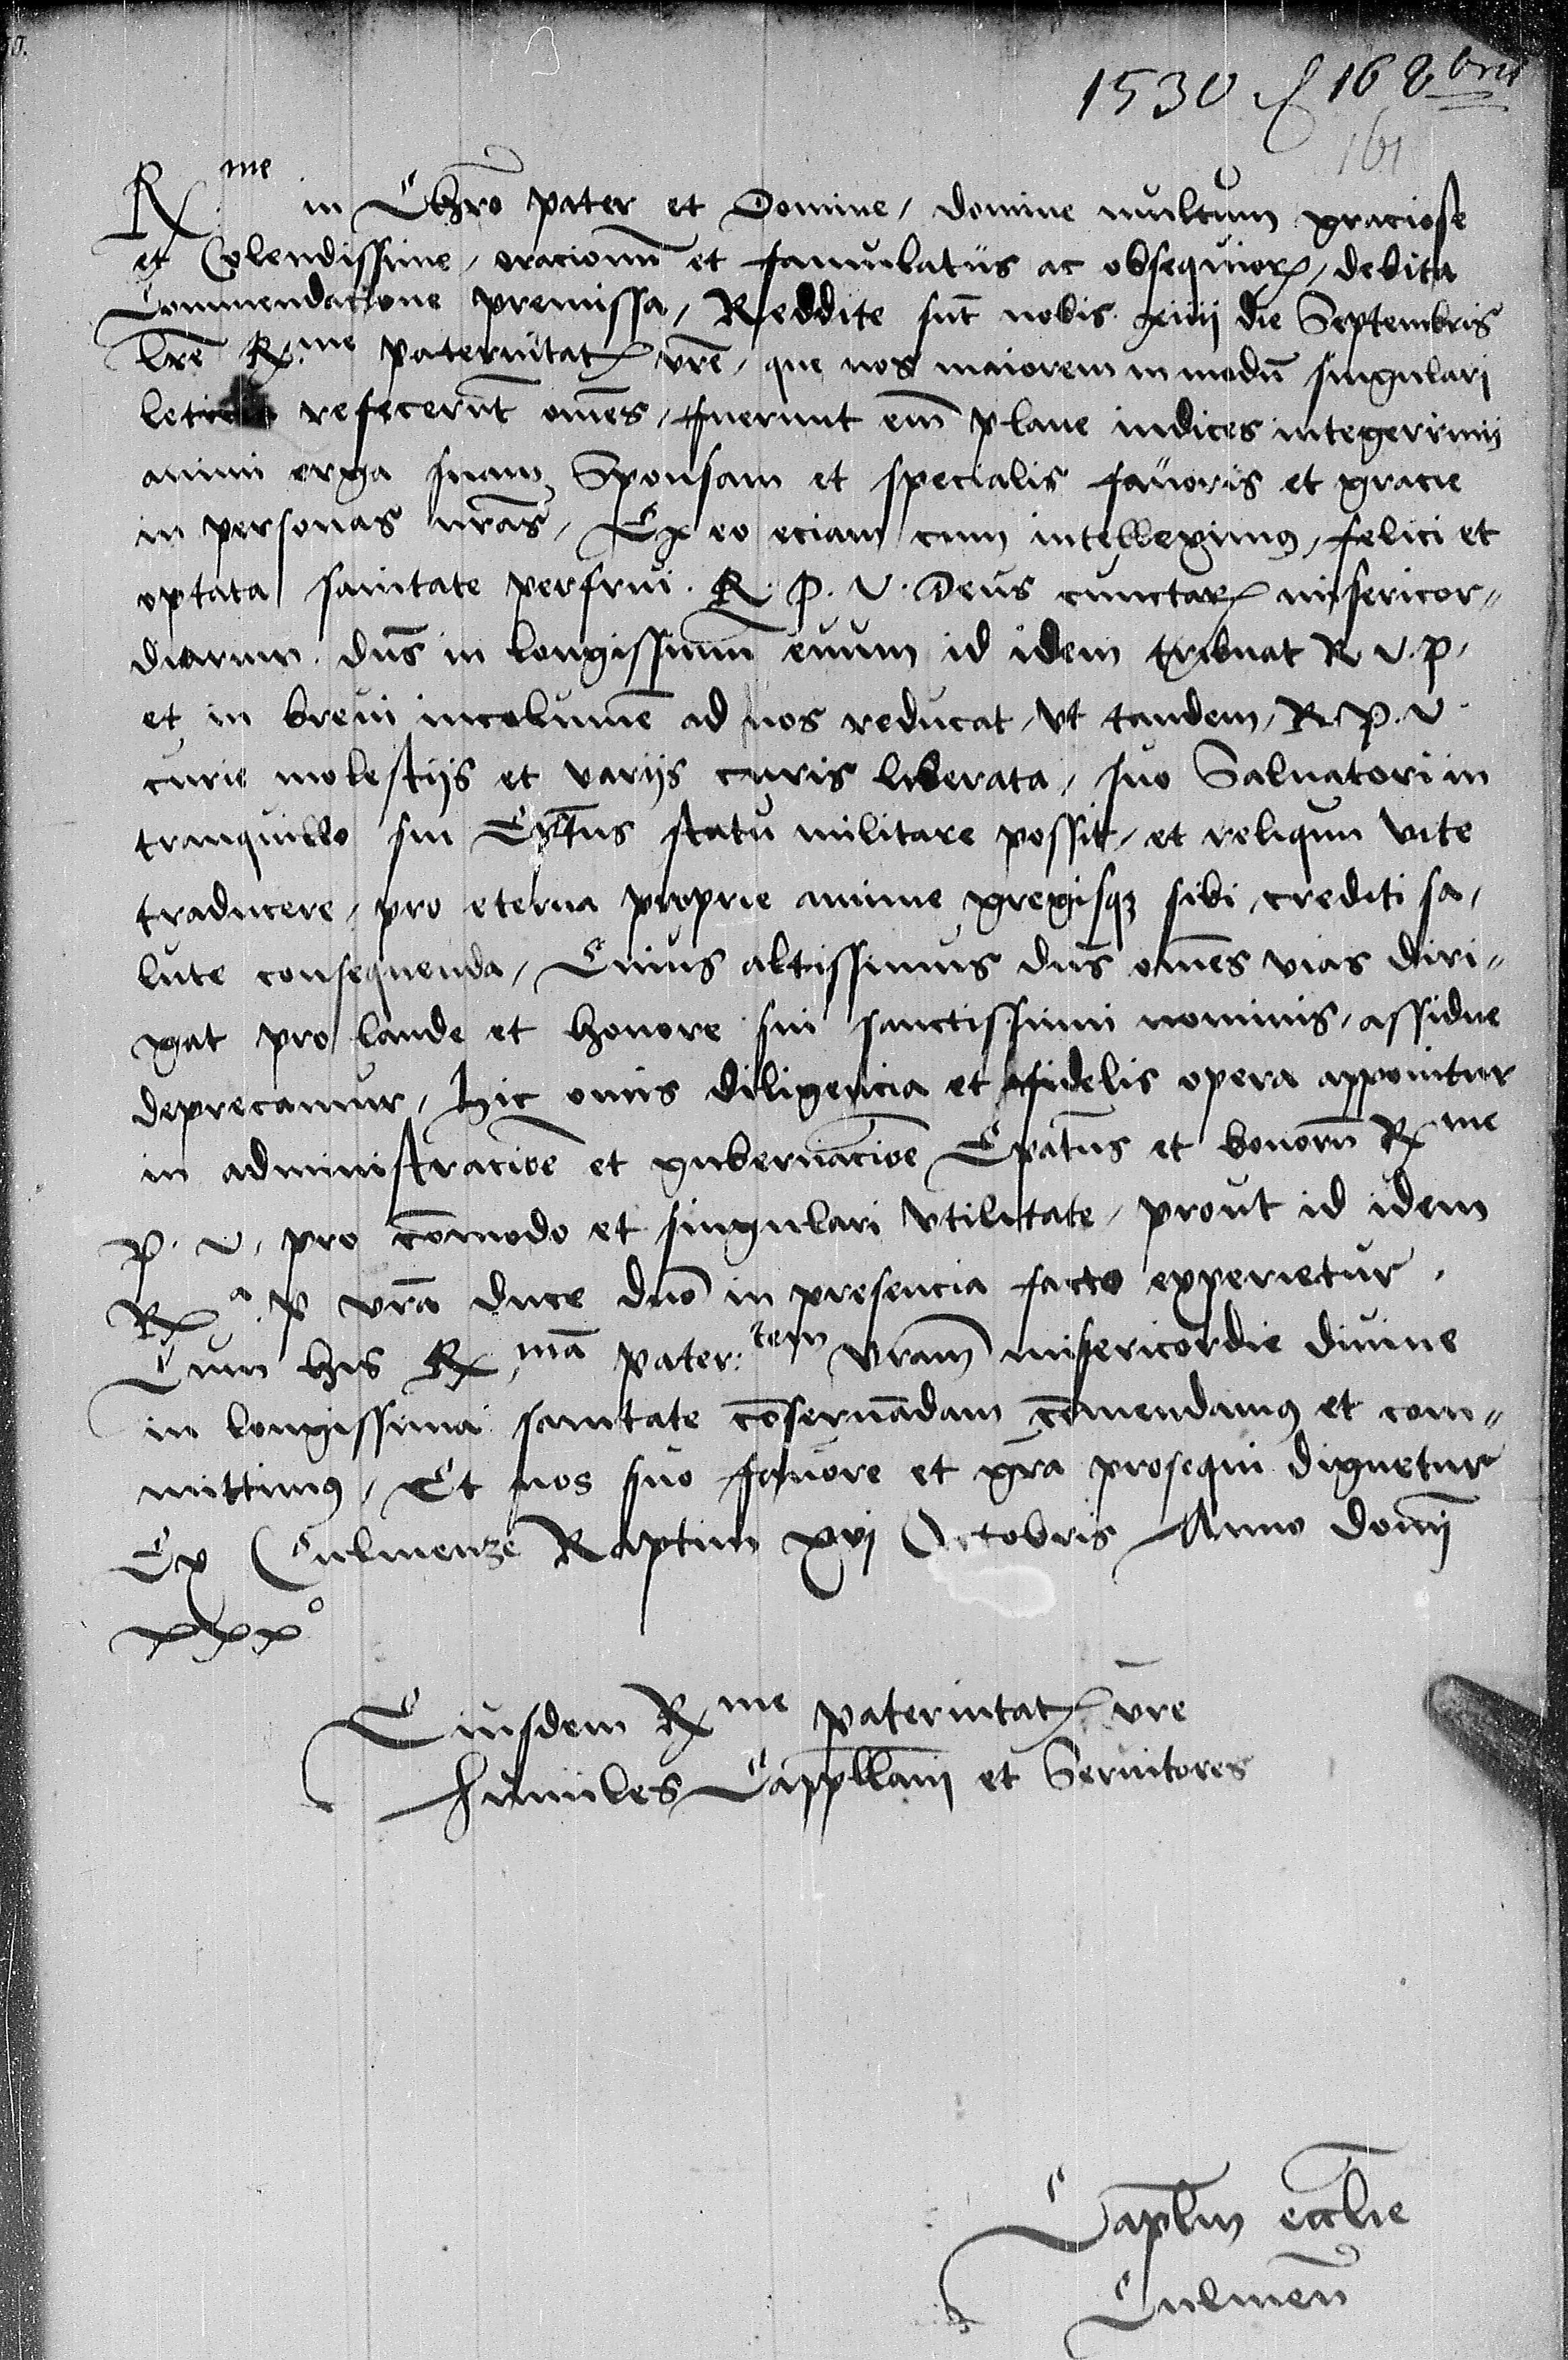 1530 d 16 8bris
161
R.me in Chro pater et Domine, domine multum graciose
et Colendissime, oracionum et famulatus ac obsequiorum, debita
Commendatione premissa, Reddite sunt nobis xiiii die Septembris
lre R.me paternitatis vre, que nos maiorem in modum singulari
leticia refecerunt omnes, fuerunt enim plane indices integerrimi
animi erga suam Sponsam et specialis favoris et gracie
in personas nras, Ex eo eciam cum intelleximus, felici et
optata sanitate perfrui. R. P. V. Deus cunctarum misericor-
diarum. dns in longissimum euum id idem tribuat R. V. P.
et in breui incolumem ad nos reducat, vt tandem, R. P. V.
curie molestijs et varijs curis liberata, suo Saluatori in
tranquillo sui Epatus statu militare possit, et reliqum vite
traducere, pro eterna proprie anime gregisque sibi crediti sa-
lute consequenda, Cuius altissimus dns omnes vias diri-
gat pro laude et honore sui sanctissimi nominis, assidue
deprecamur, hic omnis diligencia et fidelis opera apponitur
in administracione et gubernacione Epatus et bonorum R.me
P. V. pro commodo et singulari vtilitate, prout id idem
R.a p vra duce dno in presencia facto experietur.
Cum his R.ma pater:tem vram misericordie divine
in longissima sanitate conseruandam comendamus et com-
mittimus, Et nos suo favore et gra prosequi dignetur
Ex Culmenze Raptim xvj Octobris Anno domi
xxx°
Eiusdem R.me paternitatis vre
humiles Cappellani et Seruitores
Caplm ecclie
Culmen